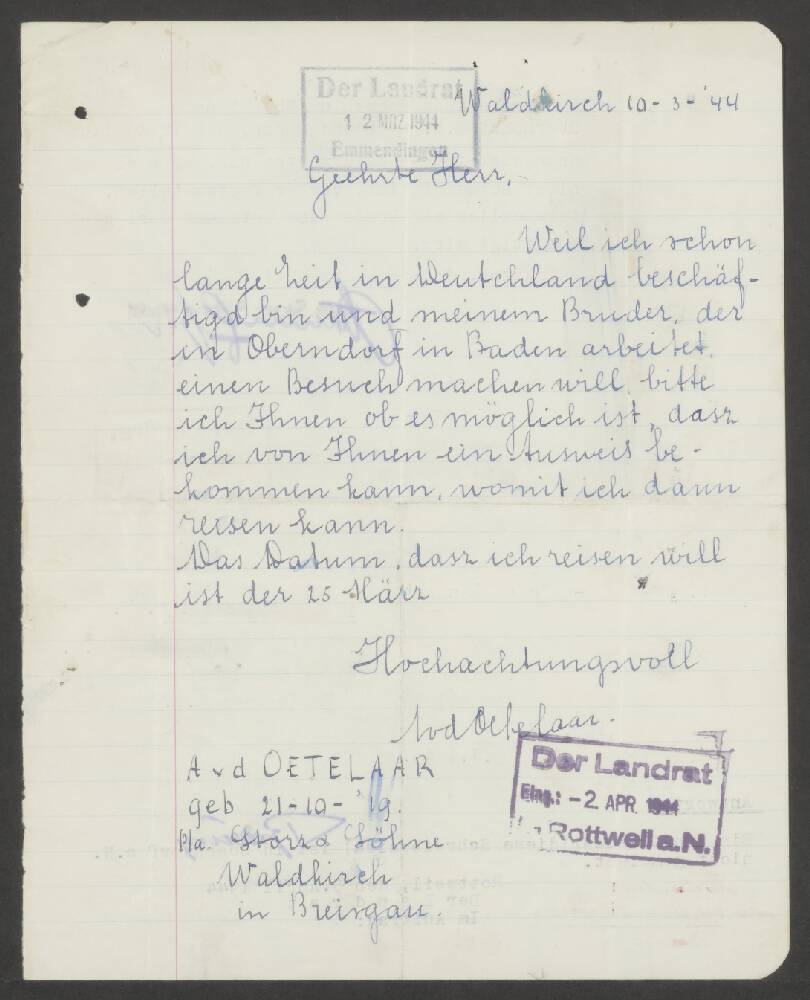 Der Landrat
12 MRZ. 1944
Emmendingen
Waldkirch 10-3-'44
Geehrte Herr,
Weil ich schon
lange Zeit in Deutchland beschäf-
tigd bin und meinem Bruder, der
in Oberndorf in Baden arbeitet,
einen Besuch machen will, bitte
ich Ihnen ob es möglich ist, dasz
ich von Ihnen ein Ausweis be-
kommen kann, womit ich dann
reisen kann.
Das Datum, dasz ich reisen will
ist der 25 März
Hochachtungsvoll
AvdOetelaar.
A v d OETELAAR
geb 21-10-'19.
P/a. Storz & Söhne
Waldkirch
in Breisgau.
Der Landrat
Eing.: -2. APR. 1944
Rottweil a.N.